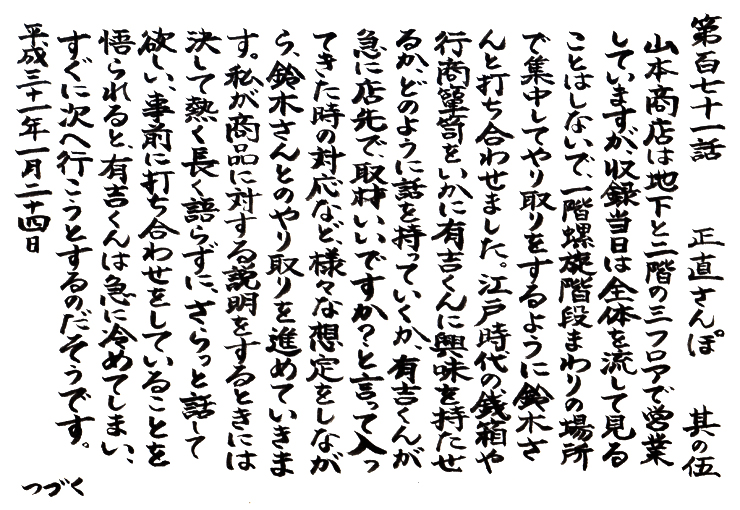 第百七十一話　正直さんぽ　其の伍
山本商店は地下と二階の三フロアで営業
していますが、収録当日は全体を流して見る
ことはしないで、一階螺旋階段まわりの場所
で集中してやり取りをするように鈴木さ
んと打ち合わせました。江戸時代の銭箱や
行商箪笥をいかに有吉くんに興味を持たせ
るか、どのように話を持っていくか、有吉くんが
急に店先で、取材いいですか？と言って入っ
てきた時の対応など、様々な想定をしなが
ら、鈴木さんとのやり取りを進めていきま
す。私が商品に対する説明をするときには
決して熱く長く語らずに、さらっと話して
欲しい、事前に打ち合わせをしていることを
悟られると、有吉くんは急に冷めてしまい、
すぐに次へ行こうとするのだそうです。
平成三十一年一月二十四日
つづく